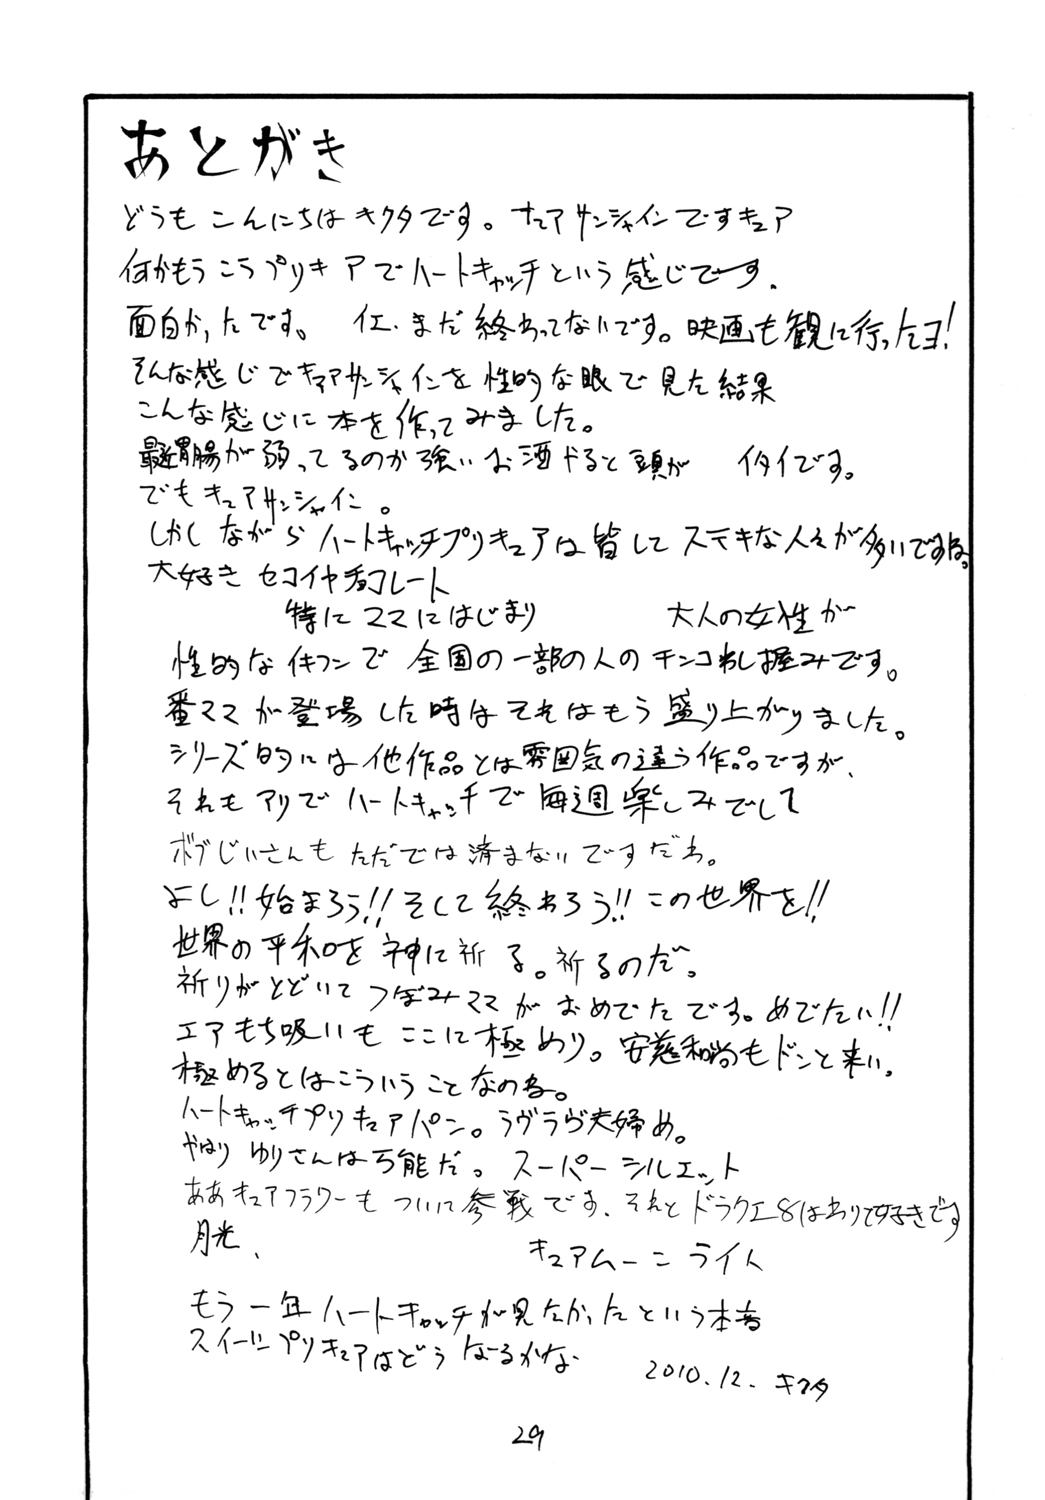 あとがき
どうも こんにちは キクタです。キュアサンシャインですキュア
何かもう こう プリキュアでハートキャッチという感じです。
面白かったです。 イエ、まだ終わってないです。映画も観に行ったヨ!
そんな感じでキュアサンシャインを性的な眼で見た結果
こんな感じに本を作ってみました。
最近胃腸が弱ってるのか強いお酒やると頭が イタイです。
でもキュアサンシャイン。
しかしながらハートキャッチプリキュアは皆してステキな人々が多いですね。
大好き セコイヤチョコレート
特にママにはじまり 大人の女性が
性的なイキフンで全国の一部の人のチンコわし掴みです。
番ママが登場した時はそれはもう盛り上がりました。
シリーズ的には他作品とは雰囲気の違う作品ですが、
それもアリでハートキャッチで毎週楽しみでして
ボブじいさんもただでは済まないですだわ。
よし!!始まろう!!そして終わろう!!この世界を!!
世界の平和を神に祈る。祈るのだ。
祈りがとどいてつぼみママがおめでたです。めでたい!!
エアもち吸いもここに極めり。安慈和尚もドンと来い。
極めるとはこういうことなのね。
ハートキャッチプリキュアパン。ラヴラヴ夫婦め。
やはり ゆりさんは万能だ。スーパーシルエット
ああキュアフラワーもついに参戦です。それとドラクエ8はわりと好きです
月光、
キュアムーンライト
もう一年ハートキャッチが見たかったという本音
スイートプリキュアはどうなるかな
2010.12. キクタ
29